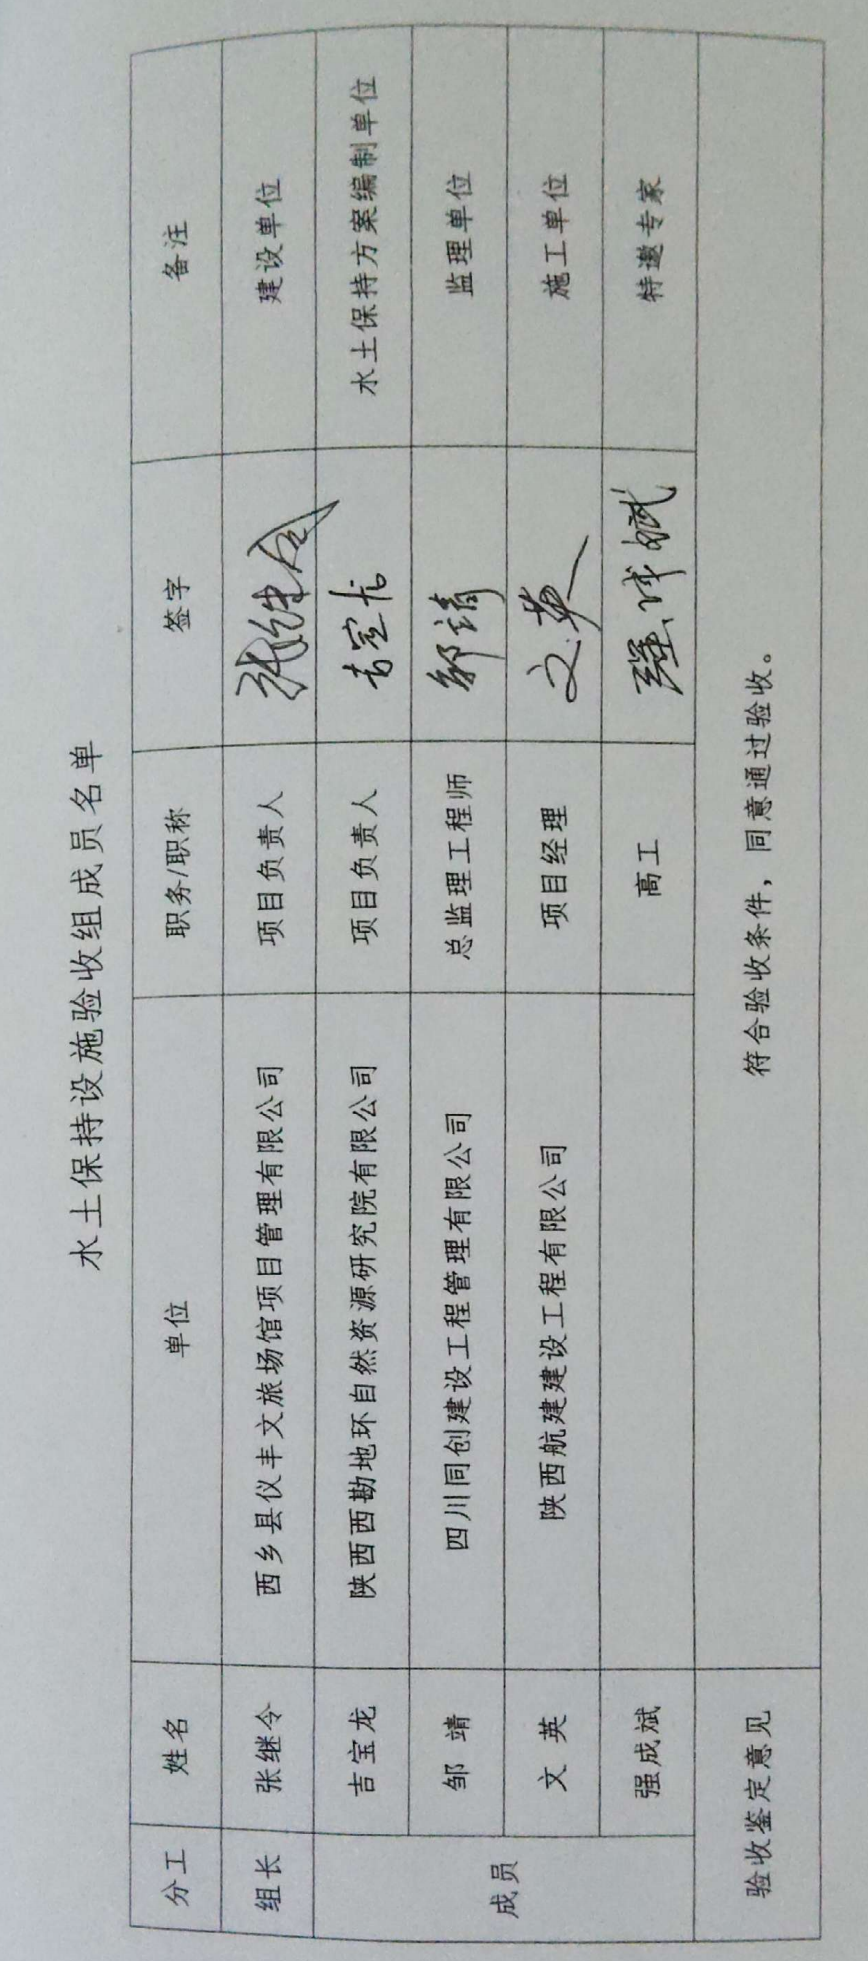 水土保持设施验收组成员名单
分工 姓名 单位 职务/职称 签字 备注
组长 张继令 西乡县仪丰文旅场馆项目管理有限公司 项目负责人 张继令 建设单位
成员 吉宝龙 陕西西勘地环自然资源研究院有限公司 项目负责人 吉宝龙 水土保持方案编制单位
邹 靖 四川同创建设工程管理有限公司 总监理工程师 邹靖 监理单位
文 英 陕西航建建设工程有限公司 项目经理 文英 施工单位
强成斌 高工 强成斌 特邀专家
验收鉴定意见 符合验收条件，同意通过验收。